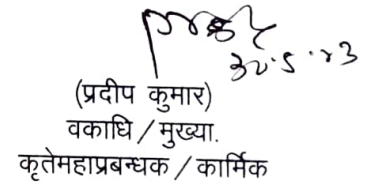 30.5.23
(प्रदीप कुमार)
वकाधि / मुख्या.
कृतेमहाप्रबन्धक / कार्मिक